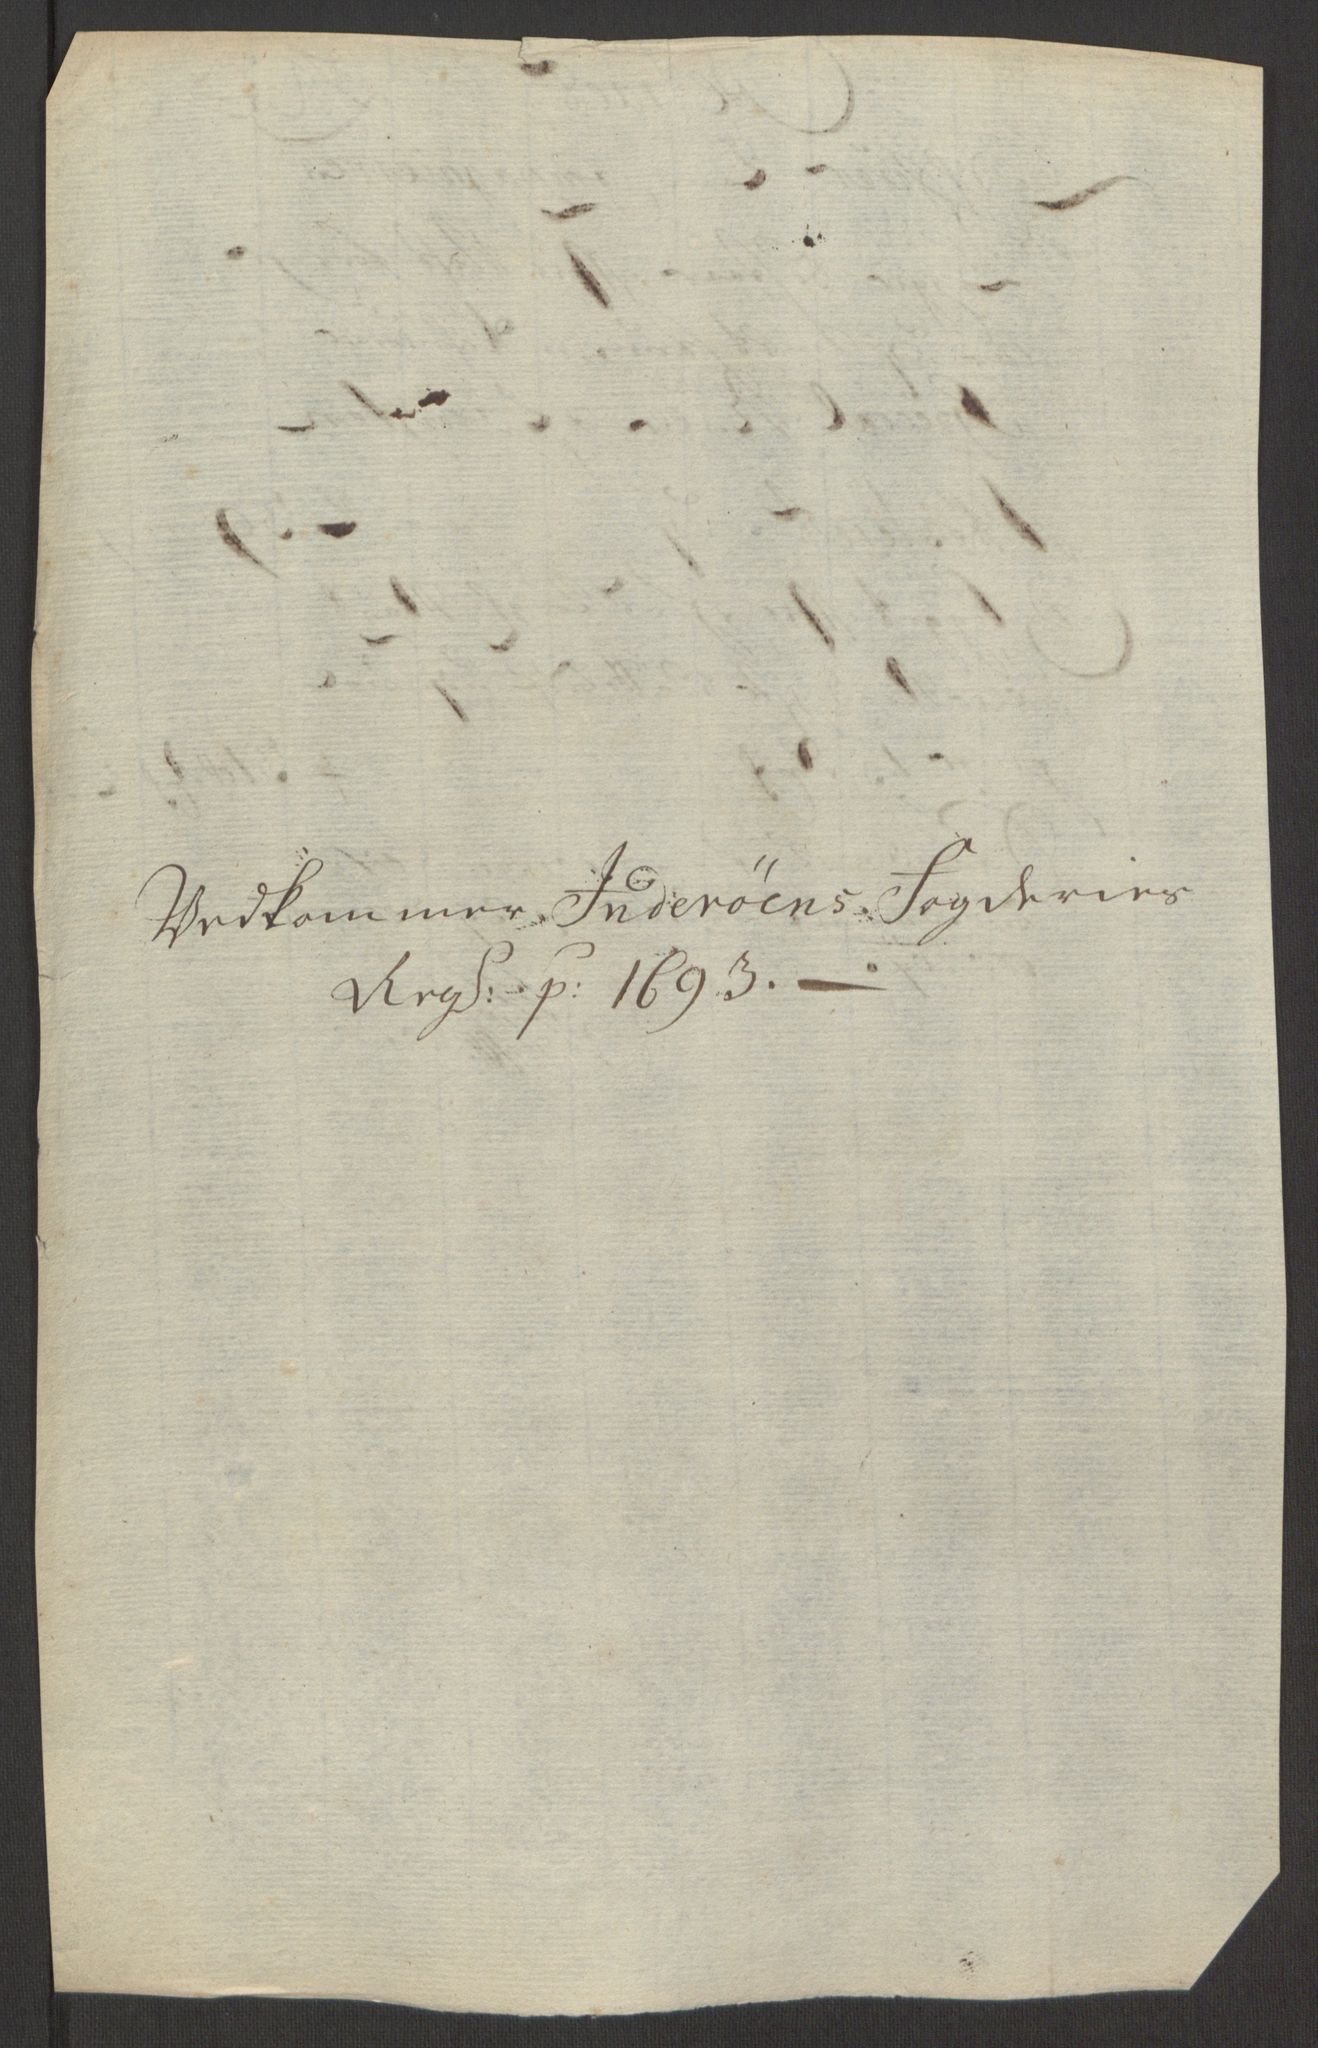 Vedkommer Inderöens Fogderies
Regs: p: 1693. —